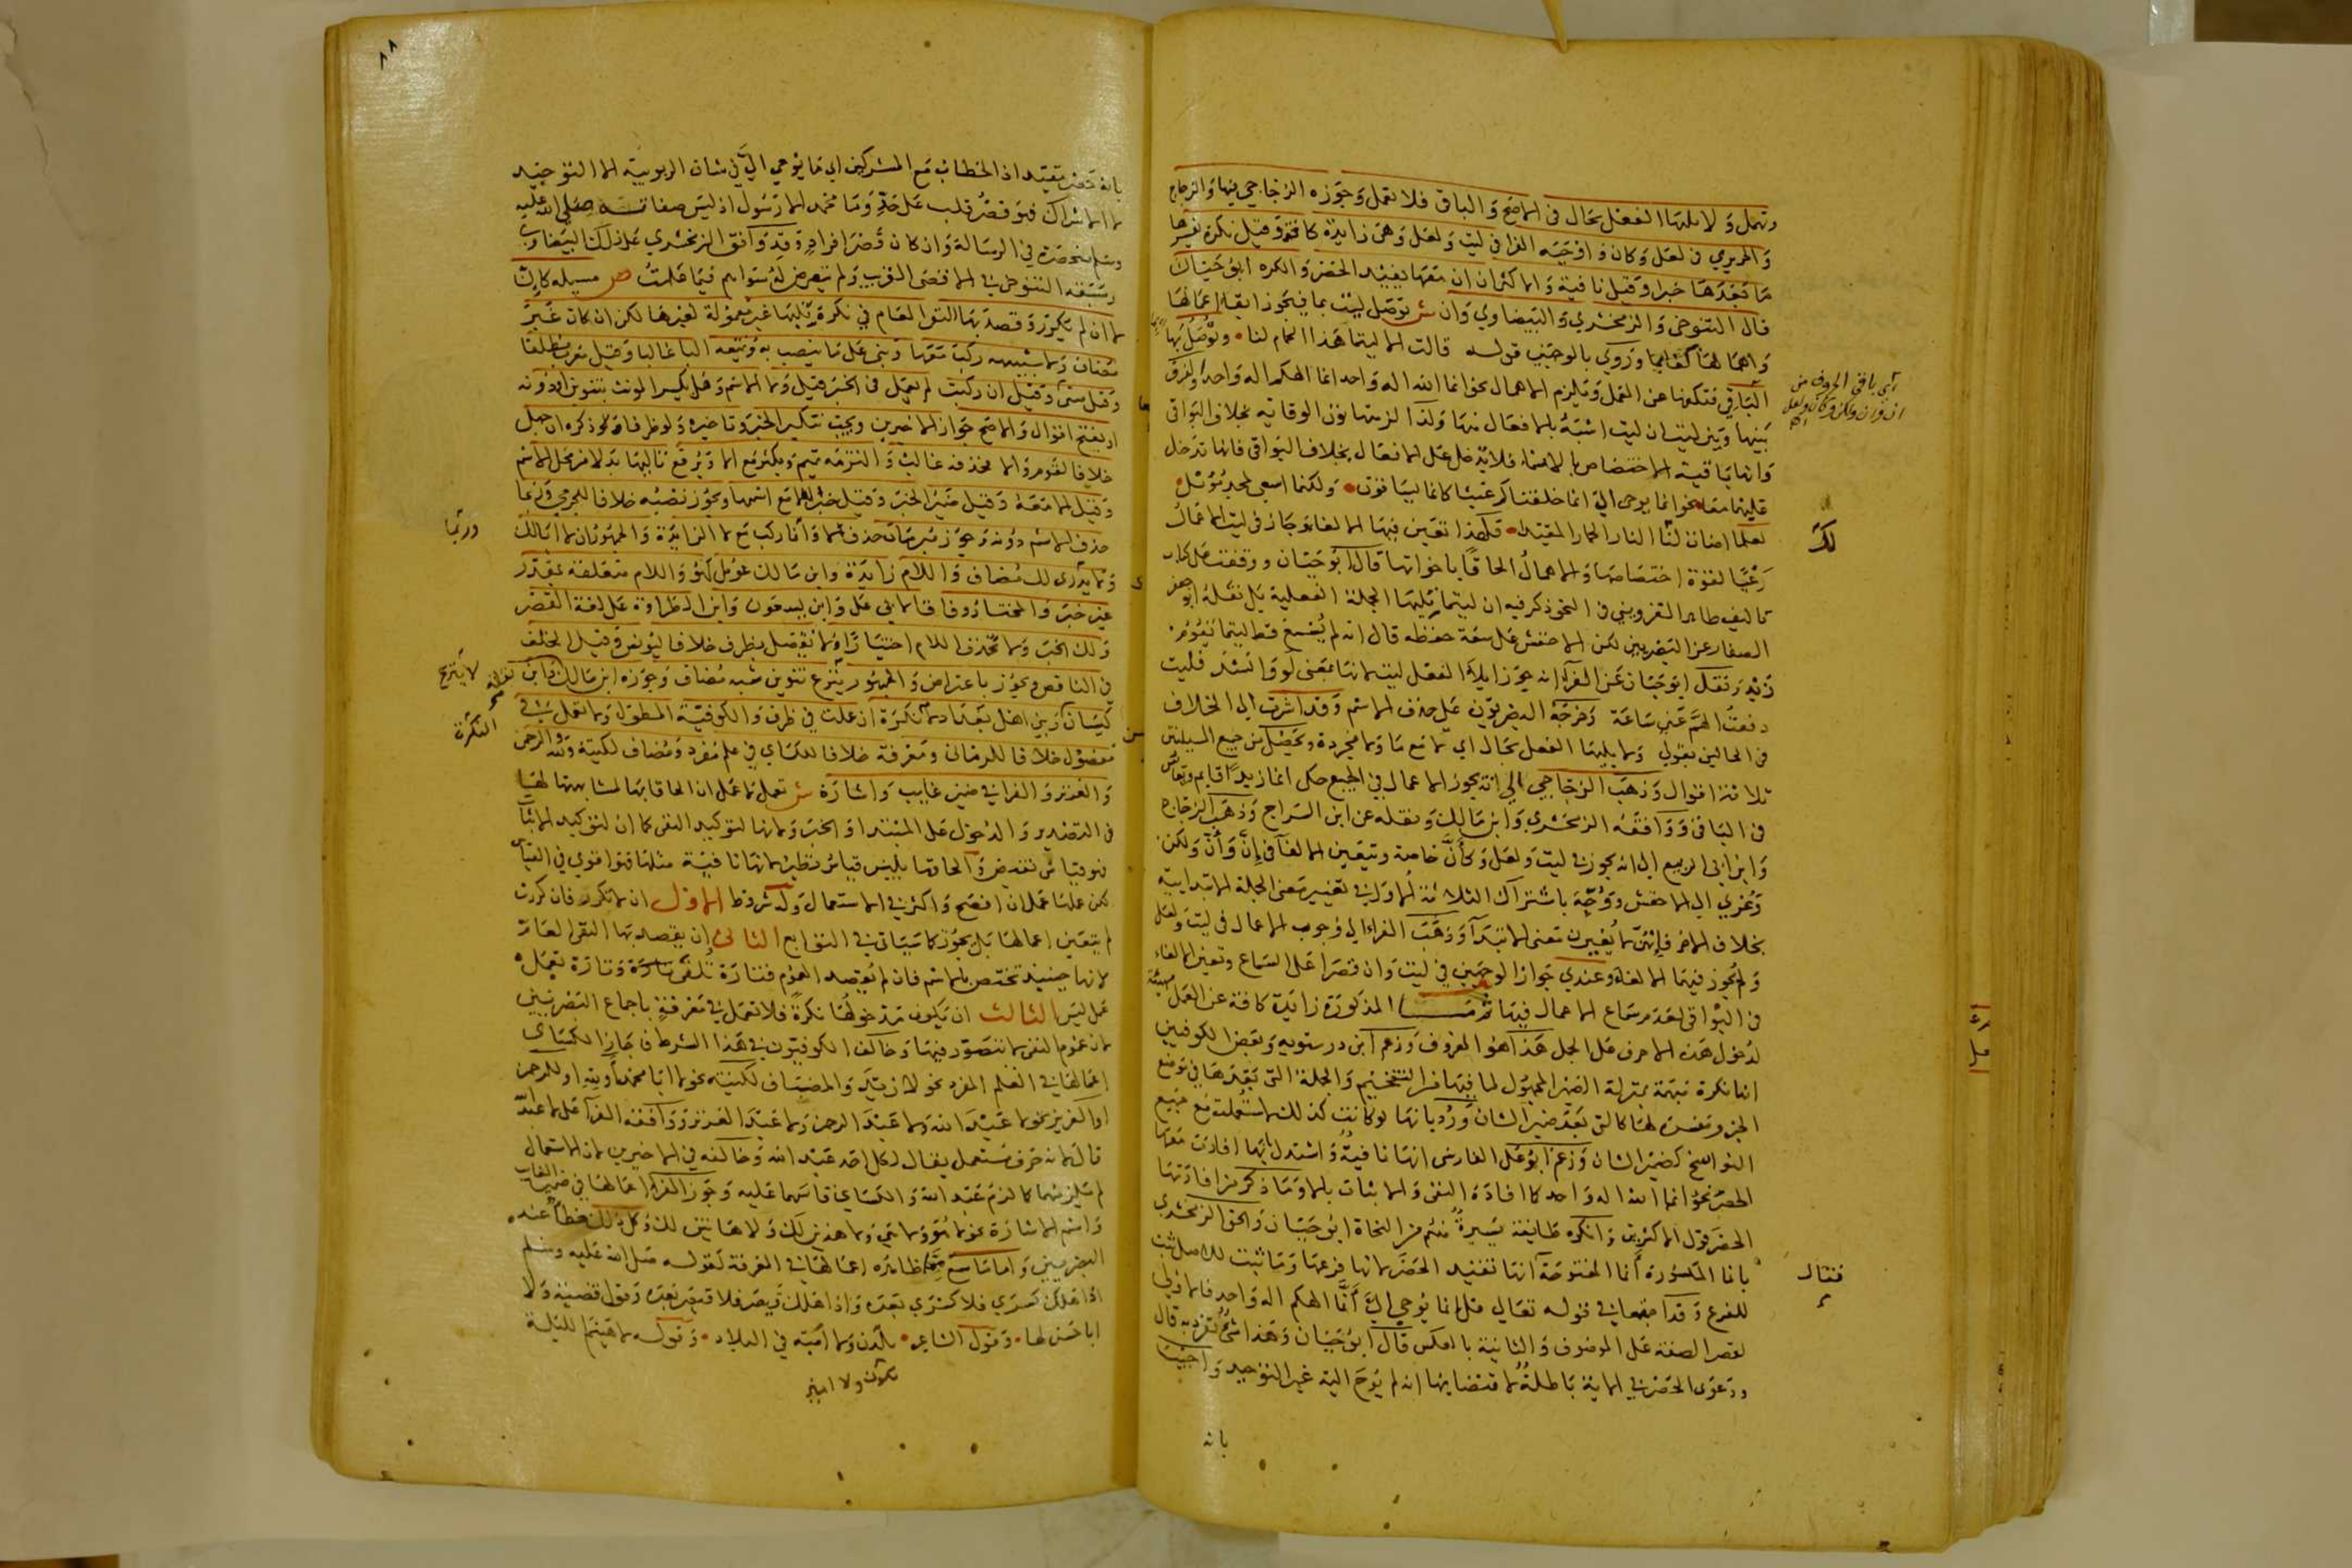 وتهمل ولا يليها الفعل بحال في الاصح والباقي فلا تعمل وجوزه الزجاجي فيها والزجاج
والجريري في لعل وكان واوجبه الفرا في ليت ولعل وهي زايدة كافة وقيل نكرة يفسرها
ما بعدها خبرا وقيل نافية والاكثر ان ان معها يفيد الحصر وانكره ابو حيان
قال التنوخي والزمخشري والبيضاوي وان ش توصل ليت بما فيجوز ابقا اعمالها
واهمالها كفا بما وروي بالوجهين قوله قالت الا ليتما هذا الحمام لنا وتوصل بها
البواقي فتكفها عن العمل ويلزم الاهمال نحو انما الله اله واحد انما الهكم اله واحد والفرق
بينها وبين ليت ان ليت اشبه بالافعال منها ولذا لزمتها نون الوقاية بخلاف البواقي
وانها باقية الاختصاص بالاسما فلا يدخل على الافعال بخلاف البواقي فانها تدخل
عليها معا نحو انما يوحى الي انما خلقناكم عبثا كانما يساقون ولكنما اسعى لمجد مؤثل
لعلما اضات لك النار الحمار المقيدا فلهذا تعين فيها الالغا وجاز في ليت الاعمال
رعيا لقوة اختصاصها والاهمال الحاقا باخواتها قال ابو حيان ووقفت على كتاب
تاليف طاهر القزويني في النحو ذكر فيه ان ليتما يليها الجملة الفعلية بل نقله ابو جعفر
الصفار عن البصريين لكن الاخفش على سعة حفظه قال انه لم يسمع قط ليتما يقوم
زيد ونقل ابو حيان عن الفرا انه يجوز ايلا الفعل ليت لانها بمعنى لو وانشد فليت
دفعت الهم عني ساعة وخرجه البصريون على حذف الاسم وقد اشرت الى الخلاف
في الحالين بقولي ولا يليها الفعل بحال اي لا مع ما ولا مجردة ويحصل من جميع المسيلتين
ثلاثة اقوال وذهب الزجاجي الى انه يجوز الاعمال في الجميع حكى انما زيدا قايم وقاس
في الباقي ووافقه الزمخشري وابن مالك ونقله عن ابن السراج وذهب الزجاج
وابن ابي الربيع الى انه يجوز في ليت ولعل وكان خاصة ويتعين الالغا في ان وان ولكن
وعزي الى الاخفش ووجه باشتراك الثلاثة الاول في تغيير معنى الجملة الابتدايية
بخلاف الاخر فانها لا يغيرن معنى الابتدا وذهب الفرا الى وجوب الاعمال في ليت ولعل
ولم يجوز فيهما الالغا وعندي جواز الوجهين في ليت وان قصرا على السماع وتعين الالغا
في البواقي لعدم سماع الاعمال فيها ثم ما المذكورة زايدة كافة عن العمل مهيئة
لدخول هذه الاحرف على الجمل هذا هو المعروف وزعم ابن درستويه وبعض الكوفيين
انها نكرة مبهمة بمنزلة الضمير المجهول لما فيها من التفخيم والجملة التي بعدها في موضع
الخبر ومفسرة لها كالتي بعد ضمير الشان ورد بانها لو كانت كذلك لاستعملت مع جميع
النواسخ كضمير الشان وزعم ابو علي الفارسي انها نافية واستدل بانها افادت معها
الحصر نحو انما الله اله واحد كافادة النفي والاثبات بالا وما ذكر من افادتها
الحصر قول الاكثرين وانكره طايفة يسيرة منهم من النحاة ابو حيان والحق الزمخشري
بانما المكسورة انما المفتوحة انها تفيد الحصر لانها فرعها وما ثبت للاصل ثبت
للفرع وقد اجتمعا في قوله تعالى قل انما يوحى الي انما الهكم اله واحد فالاولى
لقصر الصفة على الموصوف والثانية بالعكس قال ابو حيان وهذا شي انفرد به قال
ودعوى الحصر في الاية باطلة لاقتضايها انه لم يوح اليه غير التوحيد واجيب
بانه
اي باقي الحروف من
ان وان ولكن وكان ولعل
لك
فقال
بانه حصر مقيد اذ الخطاب مع المشركين اي ما يوحى الي في شان الربوبية الا التوحيد
لا الاشراك فهو قصر قلب على حد وما محمد الا رسول اذ ليس صفاته صلى الله عليه
وسلم منحصرة في الرسالة وان كان قصر افراد وقد وافق الزمخشري على ذلك البيضاوي
وسبقه التنوخي في الاقصى القريب ولم يتعرض له سواهم فيما علمت ص مسيلة كان
لا ان لم تكرر وقصد بها النفي العام في نكرة تليها غير معمولة لغيرها لكن ان كان غير
مضاف ولا شبيهه ركبت معها وبني على ما ينصب به وتتبعه البا غالبا وقيل معرب مطلقا
وقيل مثنى وقيل ان ركبت لم تعمل في الخبر وقيل ولا الاسم وهل يكسر المونث بتنوين او دونه
او يفتح اقوال والاصح جواز الاخيرين ويجب تنكير الخبر وتاخيره ولو ظرفا وكذا ذكره ان جهل
خلافا لقوم والا فحذفه غالب والتزمه تميم ويكثر مع الا ويرفع تاليها بدلا من محل الاسم
وقيل لا معه وقيل ضمير الخبر وقيل خبر للا مع اسمها ويجوز نصبه خلافا للجرمي وربما
حذف الاسم دونه وجوز مبرمان حذف لا وانا ركبت مع لا الزايدة والجمهور ان لا ابا لك
ولا يدي لك مضاف واللام زايدة وابن مالك عومل كهو واللام متعلقة بمقدر
غير خبر والمختار وفاقا لابي علي وابن يسعون وابن الطراوة على لغة القصر
ولك الخبر ولا تحذف اللام اختيارا ولا يفصل بظرف خلافا ليونس وقيل الخلف
في الناقص ويجوز باعتراض والجمهور ينزع تنوين شبه مضاف وجوزه ابن مالك وابن
كيسان وبني اهل بغداد نكرة ان عملت في ظرف والكوفية المطول ولا تعمل في
مفصول خلافا للرماني ومعرفة خلافا للكساي في علم مفرد ومضاف لكنية ولله والرحمن
والعزيز والفرا في ضمير غايب واشارة ش تعمل لا عمل ان الحاقا بها لمشابهتها لها
في التصدير والدخول على المبتدا والخبر ولانها لتوكيد النفي كما ان لتوكيد الاثبات
فهو قياس نقيض والحاقها بليس قياس نظير لانها نافية مثلها فهو اقوى في القياس
لكن عملها عمل ان افصح واكثر في الاستعمال وله شروط الاول ان لا تكرر فان كررت
لم يتعين اعمالها بل يجوز كما سياتي في التوابع الثاني ان يقصد بها النفي العام
لانها حينيذ تختص بالاسم فان لم يقصد العموم فتارة تلغى وتارة تعمل
عمل ليس الثالث ان يكون مدخولها نكرة فلا تعمل في معرفة باجماع البصريين
لان عموم النفي لا يتصور فيها وخالف الكوفيون في هذا الشرط فاجاز الكساي
اعمالها في العلم المفرد نحو لا زيد والمضاف لكنيته نحو لا ابا محمد او لله او للرحمن
او العزيز نحو لا عبد الله ولا عبد الرحمن ولا عبد العزيز ووافقه الفرا على لا عبد الله
قال لانه حرف مستعمل يقال لكل احد عبد الله وخالفه في الاخيرين لان الاستعمال
لم يلزمهما كما لزم عبد الله والكساي قاسهما عليه وجوز الفرا اعمالها في ضمير الغايب
واسم الاشارة نحو لا هو ولا هي ولا هذين لك ولا هاتين لك وكل ذلك خطا عند
البصريين واما ما سمع مما ظاهره اعمالها في المعرفة لقوله صلى الله عليه وسلم
اذا هلك كسرى فلا كسرى بعده واذا هلك قيصر فلا قيصر بعده وقول قضية ولا
ابا حسن لها وقول الشاعر ولا امية في البلاد وقوله لا هيثم الليلة
ربما
لا ينزع
النكرة
٨٨